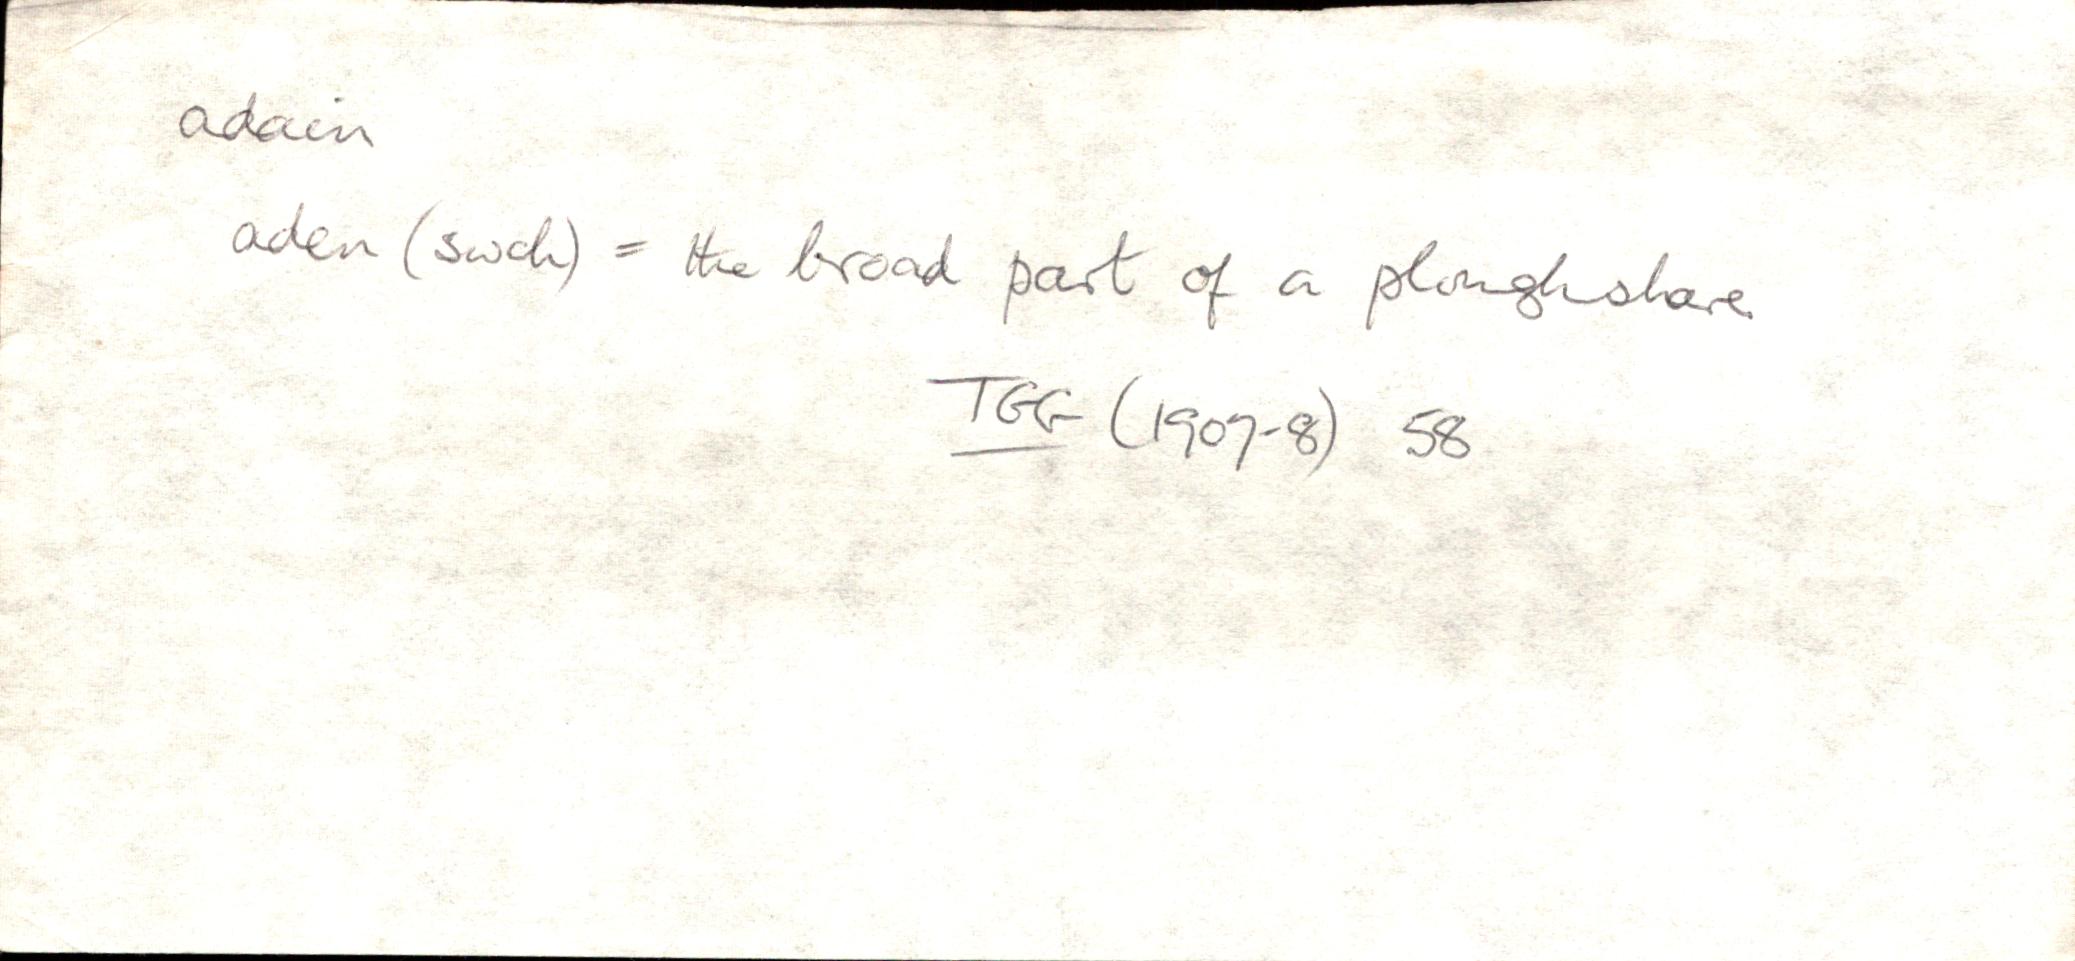 adain
aden (swch) = the broad part of a ploughshare.
TGG (1907-8) 58